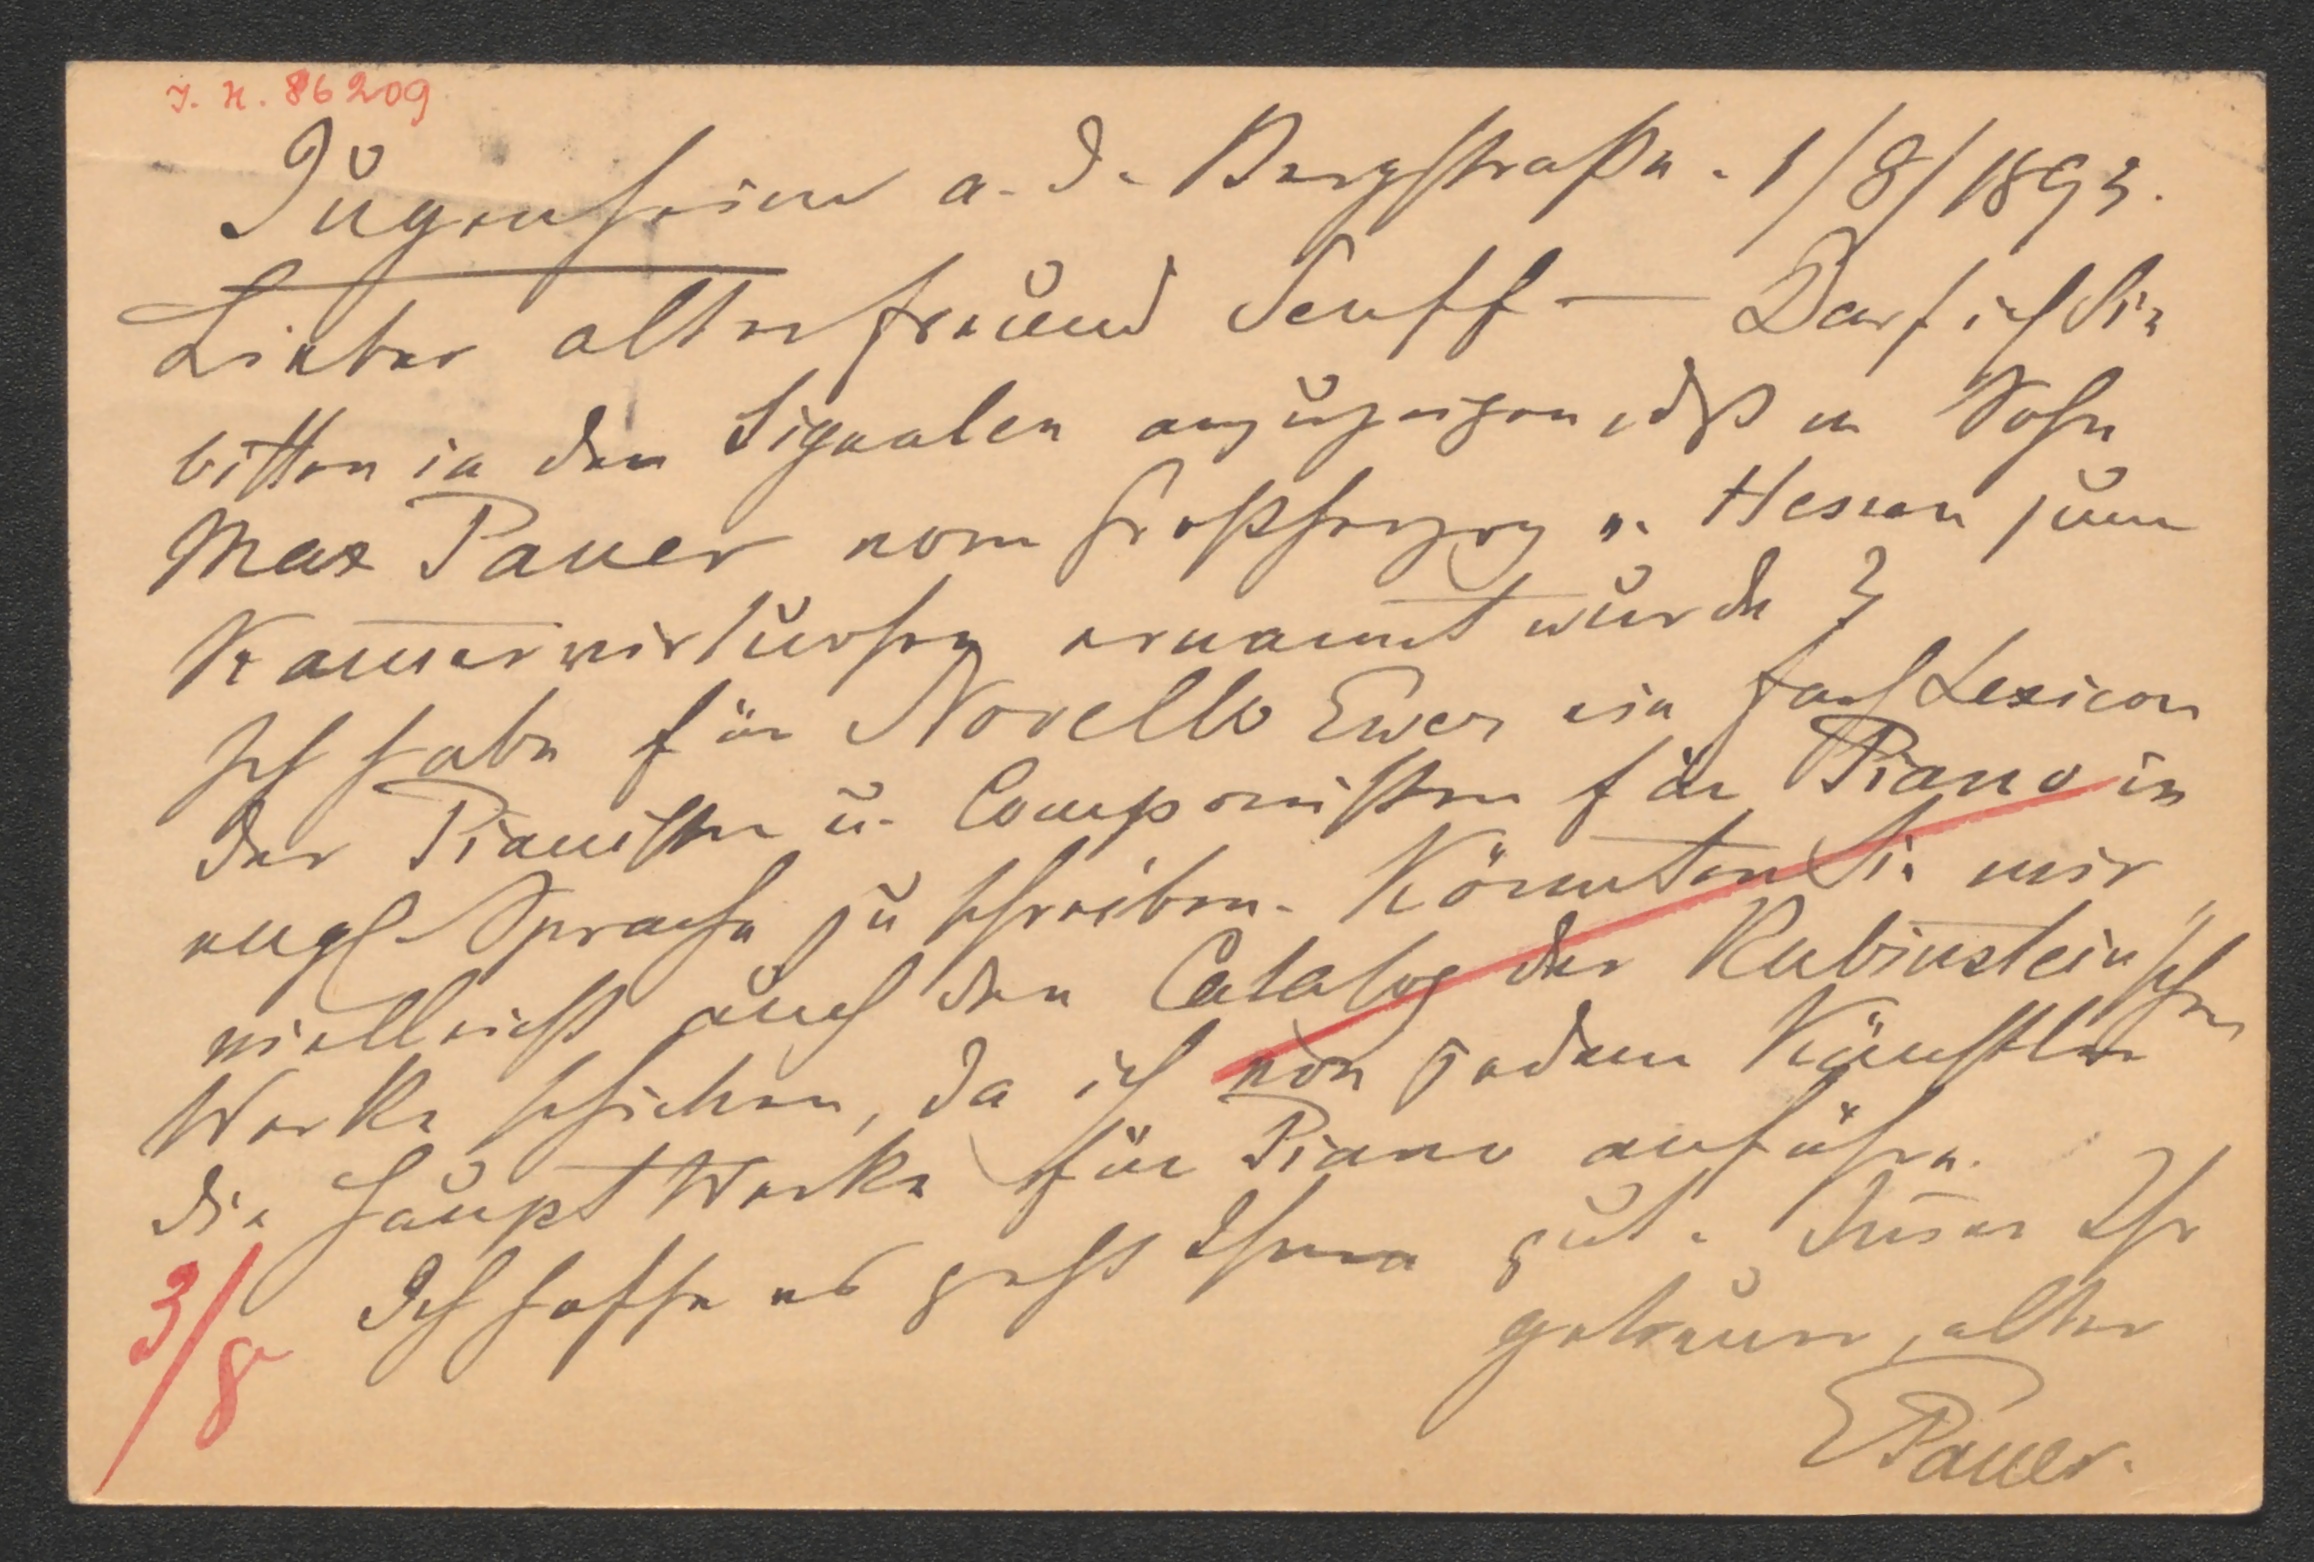 I. N. 86209
Jugenheim a. d. Bergstraße. 1/8/1893.
Lieber alter Freund Senff — Darf ich Sie
bitten in den Signalen anzuzeigen, dß m Sohn
Max Pauer vom Großherzog v. Hessen zum
Kam̅ervirtuosen ernannt wurde?
Ich habe für Novello Ewer ein Fach Lexicon
der Pianisten u. Componisten für Piano in
engl. Sprache zu schreiben. Könnten Sie mir
vielleicht auch den Catalog der Rubinstein'schen
Werke schicken, da ich von jedem Künstler
die Haupt Werke für Piano anführe.
Ich hoffe es geht Ihnen gut. Im̅er Ihr
getreuer, alter
EPauer.
3/8